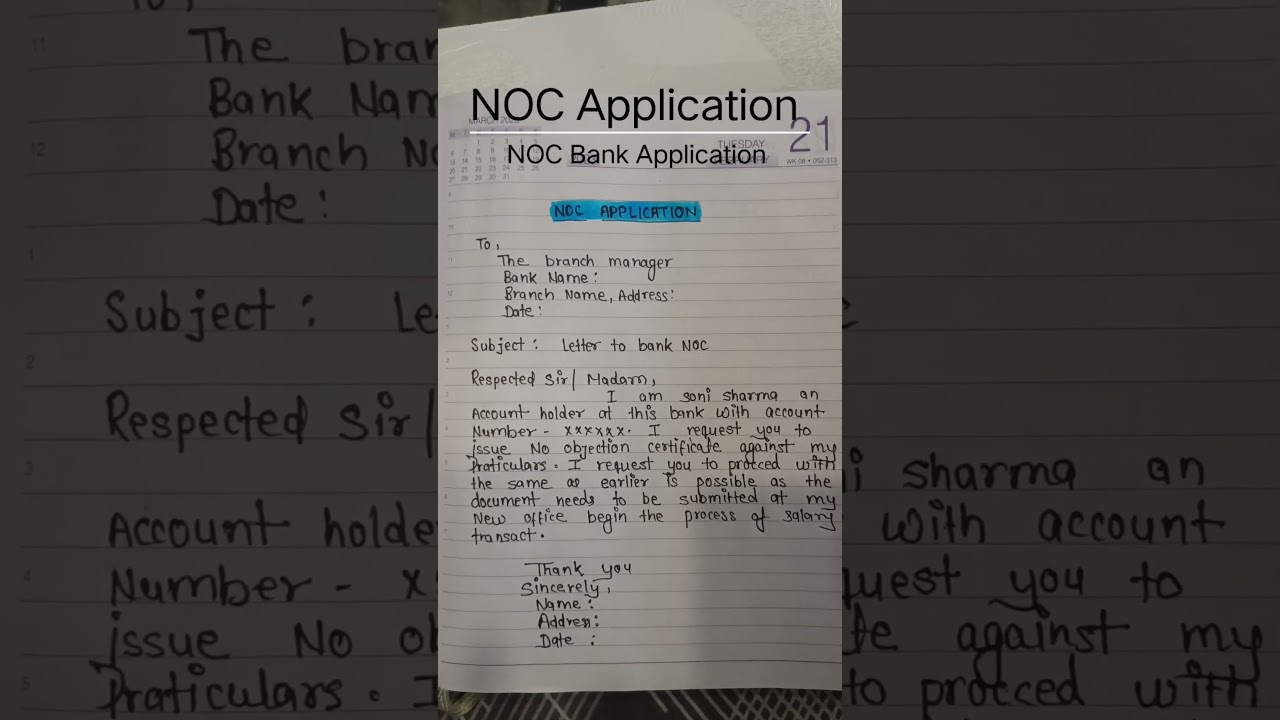 NOC Application
NOC Bank Application
MARCH 2023
TUESDAY
21
WK 08 • 052-313
NOC APPLICATION
To,
The branch manager
Bank Name:
Branch Name, Address:
Date:
Subject: Letter to bank NOC
Respected Sir/ Madam,
I am soni sharma an
Account holder at this bank with account
Number - xxxxxx. I request you to
issue No objection certificate against my
Praticulars. I request you to proceed with
the same as earlier is possible as the
document needs to be submitted at my
New office begin the process of salary
transact.
Thank you
Sincerely,
Name:
Address:
Date :